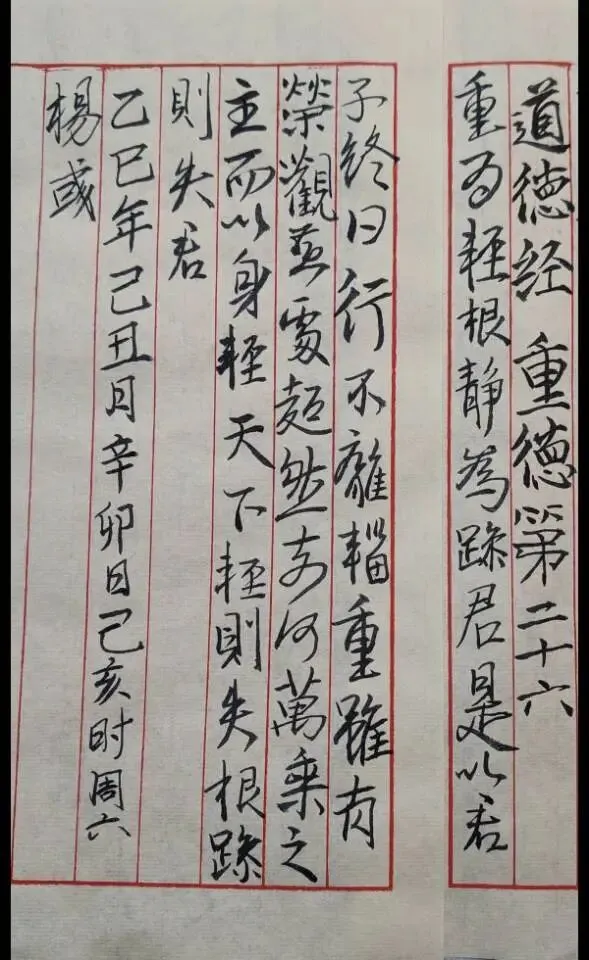 道德经 重德第二十六
重为轻根静為躁君是以君
子终日行不離輜重雖有
榮觀燕處超然奈何萬乘之
主而以身輕天下輕則失根躁
則失君
乙巳年己丑月辛卯日己亥时周六
楊彧